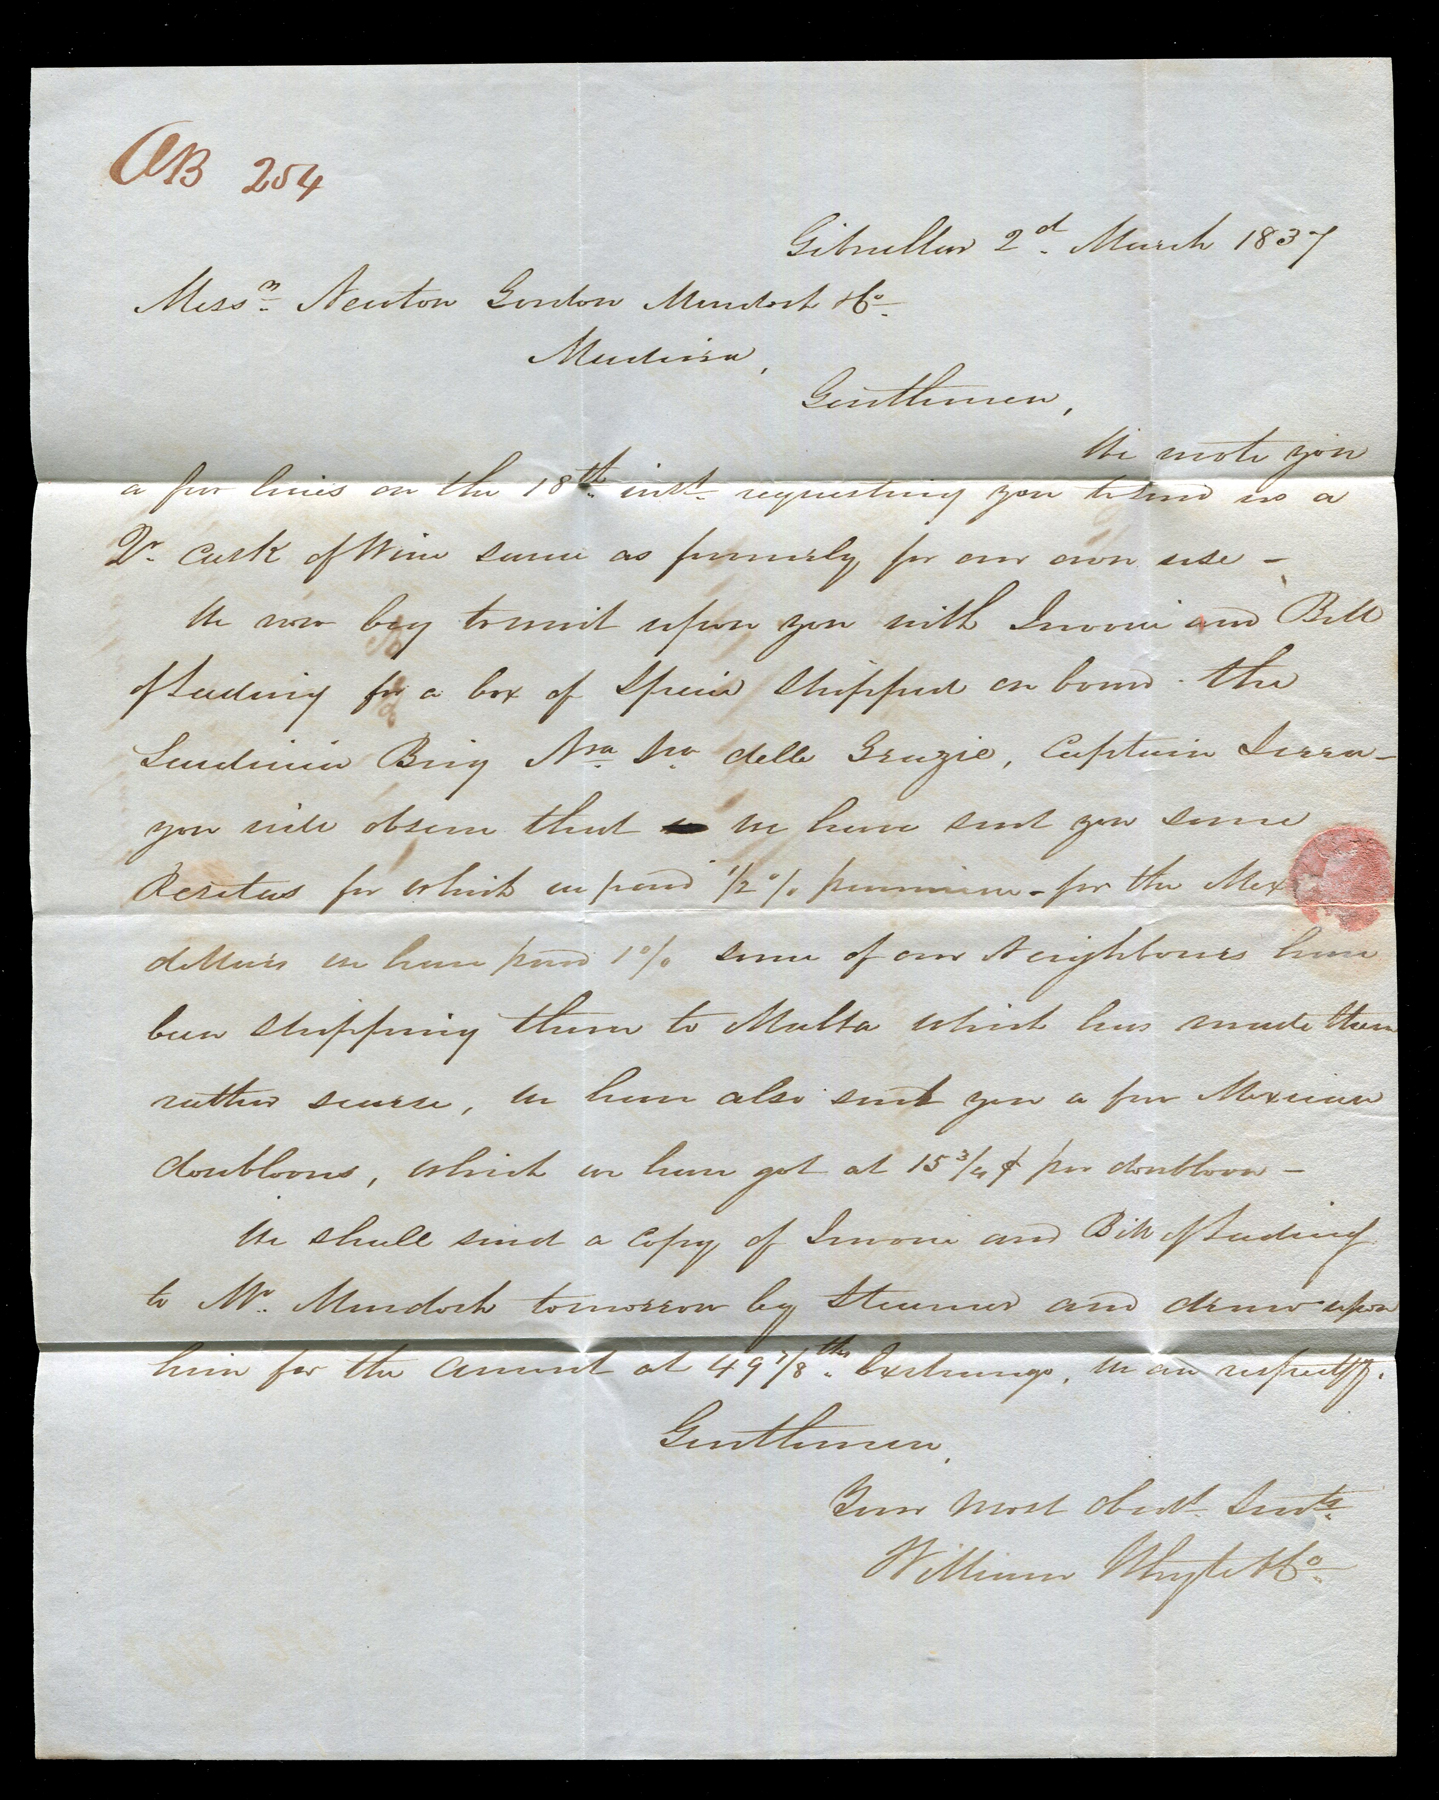 AB 254
Gibraltar 2d. March 1837
Messrs Newton Gordon Murdoch & Co.
Madeira,
Gentlemen,
We wrote you
a few lines on the 18th. inst. requesting you to send us a
Qr. Cask of Wine same as formerly for our own use –
We now beg to wait upon you with Invoice and Bill
of Lading for a box of Specie shipped on board the
Sardinian Brig Nra. Sra. delle Grazie, Captain Serra –
you will observe that we have sent you some
for which we paid 1/2 % premium – for the Mex
dollars we have paid 1 % some of our Neighbours have
been shipping them to Malta which has made them
rather scarse, we have also sent you a few Mexican
doubloons, which we have got at 15 3/4 $ per doubloon –
We shall send a copy of Invoice and Bill of Lading
to Mr. Murdoch tomorrow by Steamer and draw upon
him for the amount at 49 7/8ths. Exchange, we are respectfy.
Gentlemen,
Your most obedt. Servts.
William Whyte & Co.